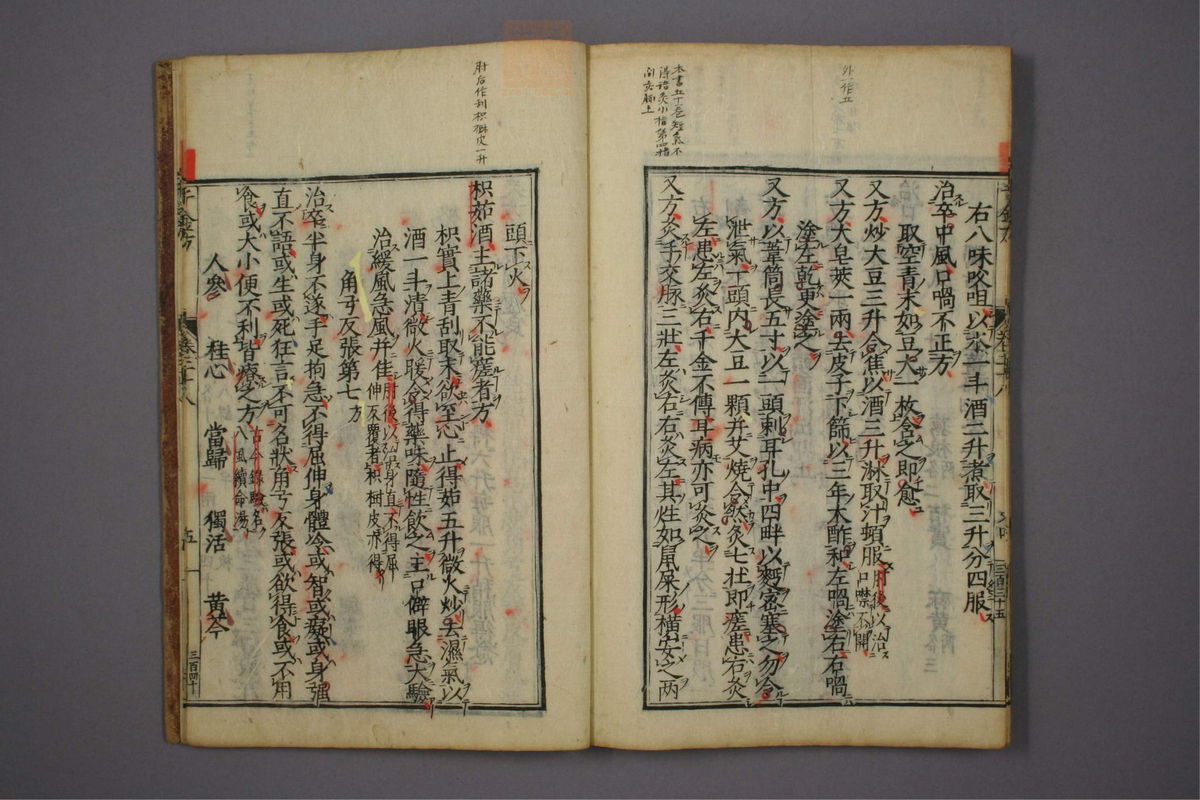 外一作五
本書五十壱短気不
得語灸小指第四指
間交脈上
右八味㕮咀以水一斗酒三升煮取三升分四服
治卒中風口喎不正方
取空青末如豆大一枚含之即愈
又方炒大豆三升令焦以酒三升淋取汁頓服肘後以治口噤不開
又方大皂莢一兩去皮子下篩以三年大酢和左喎塗右右喎
塗左乾更塗之
又方以葦筒長五寸以一頭刺耳孔中四畔以麪密塞之勿令
泄氣一頭內大豆一顆并艾燒令然灸七壯即瘥患右灸
左患左灸右千金不傳耳病亦可灸之
又方灸手交脉三壯左灸右右灸左其炷如鼠屎形橫安之兩
肘后作刮枳樹皮一升
頭下火
枳茹酒主諸藥不能瘥者方
枳實上青刮取末欲至心止得茹五升微火炒去濕氣以
酒一斗漬微火暖令得藥味隨性飲之主口僻眼急大驗
治緩風急風并佳肘後以治身直不得屈伸反覆者枳樹皮亦得
角弓反張第七 方
治卒半身不遂手足拘急不得屈伸身體冷或智或癡或身强
直不語或生或死狂言不可名狀角弓反張或欲得食或不用
食或大小便不利皆療之方古今錄驗名八風續命湯
人參 桂心 當歸 獨活 黃芩
千金方
五
三百四十
三百三十五